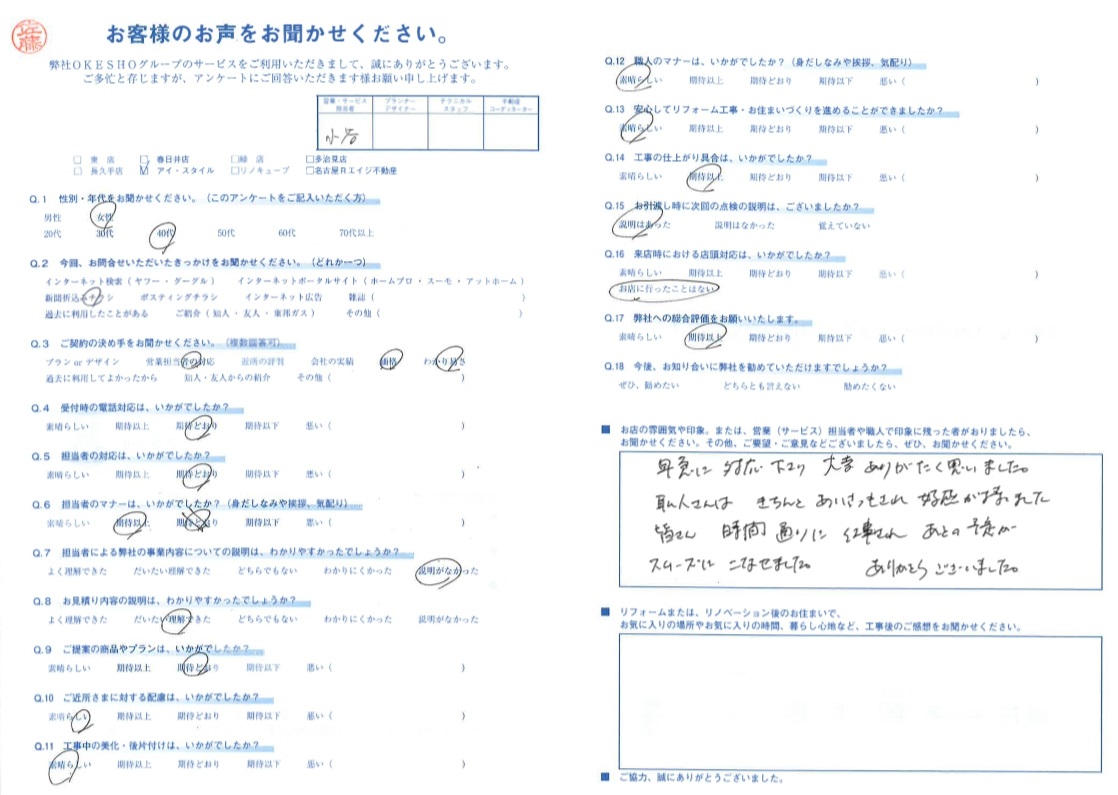 佐藤
お客様のお声をお聞かせください。
弊社OKESHOグループのサービスをご利用いただきまして、誠にありがとうございます。
ご多忙と存じますが、アンケートにご回答いただきます様お願い申し上げます。
営業・サービス担当者 プランナーデザイナー テクニカルスタッフ 不動産コーディネーター
水谷
□ 東店 □ 春日井店 □緑店 □多治見店
□ 長久手店 ☑ アイ・スタイル □リノキューブ □名古屋Rエイジ不動産
Q.1 性別・年代をお聞かせください。（このアンケートをご記入いただく方）
男性 女性
20代 30代 40代 50代 60代 70代以上
Q.2 今回、お問合せいただいたきっかけをお聞かせください。（どれか一つ）
インターネット検索（ヤフー・グーグル） インターネットポータルサイト（ホームプロ・スーモ・アットホーム）
新聞折込みチラシ ポスティングチラシ インターネット広告 雑誌（ ）
過去に利用したことがある ご紹介（知人・友人・東邦ガス） その他（ ）
Q.3 ご契約の決め手をお聞かせください。（複数回答可）
プラン or デザイン 営業担当者の対応 近所の評判 会社の実績 価格 わかり易さ
過去に利用してよかったから 知人・友人からの紹介 その他（ ）
Q.4 受付時の電話対応は、いかがでしたか？
素晴らしい 期待以上 期待どおり 期待以下 悪い（ ）
Q.5 担当者の対応は、いかがでしたか？
素晴らしい 期待以上 期待どおり 期待以下 悪い（ ）
Q.6 担当者のマナーは、いかがでしたか？（身だしなみや挨拶、気配り）
素晴らしい 期待以上 期待どおり 期待以下 悪い（ ）
Q.7 担当者による弊社の事業内容についての説明は、わかりやすかったでしょうか？
よく理解できた だいたい理解できた どちらでもない わかりにくかった 説明がなかった
Q.8 お見積り内容の説明は、わかりやすかったでしょうか？
よく理解できた だいたい理解できた どちらでもない わかりにくかった 説明がなかった
Q.9 ご提案の商品やプランは、いかがでしたか？
素晴らしい 期待以上 期待どおり 期待以下 悪い（ ）
Q.10 ご近所さまに対する配慮は、いかがでしたか？
素晴らしい 期待以上 期待どおり 期待以下 悪い（ ）
Q.11 工事中の美化・後片付けは、いかがでしたか？
素晴らしい 期待以上 期待どおり 期待以下 悪い（ ）
Q.12 職人のマナーは、いかがでしたか？（身だしなみや挨拶、気配り）
素晴らしい 期待以上 期待どおり 期待以下 悪い（ ）
Q.13 安心してリフォーム工事・お住まいづくりを進めることができましたか？
素晴らしい 期待以上 期待どおり 期待以下 悪い（ ）
Q.14 工事の仕上がり具合は、いかがでしたか？
素晴らしい 期待以上 期待どおり 期待以下 悪い（ ）
Q.15 お引渡し時に次回の点検の説明は、ございましたか？
説明はあった 説明はなかった 覚えていない
Q.16 来店時における店頭対応は、いかがでしたか？
素晴らしい 期待以上 期待どおり 期待以下 悪い（ ）
お店に行ったことはない
Q.17 弊社への総合評価をお願いいたします。
素晴らしい 期待以上 期待どおり 期待以下 悪い（ ）
Q.18 今後、お知り合いに弊社を勧めていただけますでしょうか？
ぜひ、勧めたい どちらとも言えない 勧めたくない
■ お店の雰囲気や印象。または、営業（サービス）担当者や職人で印象に残った者がおりましたら、
お聞かせください。その他、ご要望・ご意見などございましたら、ぜひ、お聞かせください。
早急に 対応 下さり 大変 ありがたく思いました。
職人さんは きちんと あいさつもされ 好感が持れました
皆さん 時間通りに 工事され あとの予定が
スムーズに こなせました。 ありがとうございました。
■ リフォームまたは、リノベーション後のお住まいで、
お気に入りの場所やお気に入りの時間、暮らし心地など、工事後のご感想をお聞かせください。
■ ご協力、誠にありがとうございました。